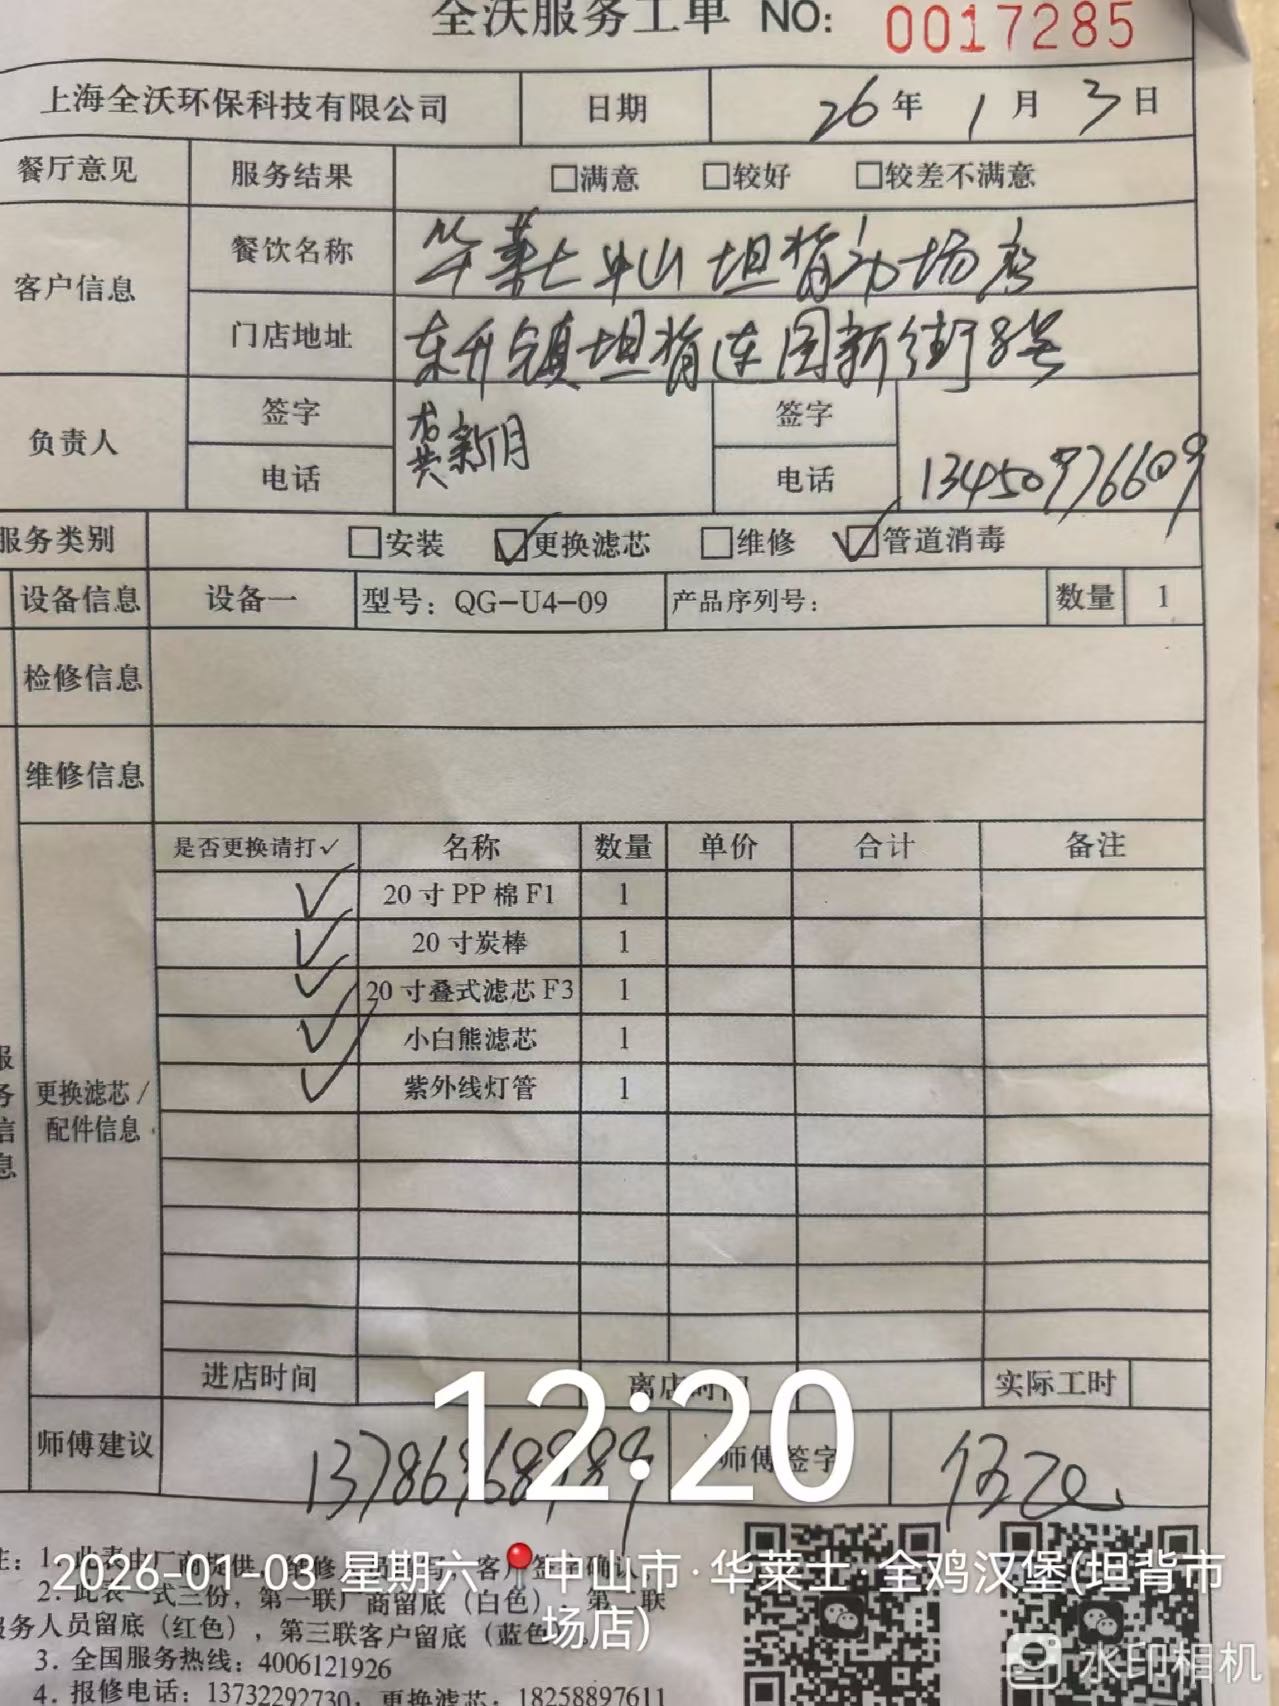 全沃服务工单 NO: 0017285
上海全沃环保科技有限公司 日期 26年 1月 3日
餐厅意见 服务结果 □满意 □较好 □较差不满意
客户信息 餐饮名称 华莱士中山坦背市场店
门店地址 东升镇坦背连围新街8号
负责人 签字 龚新月 签字
电话 电话 13450976609
服务类别 □安装 ☑更换滤芯 □维修 ☑管道消毒
设备信息 设备一 型号：QG-U4-09 产品序列号： 数量 1
检修信息
维修信息
是否更换请打✓ 名称 数量 单价 合计 备注
✓ 20寸PP棉F1 1
✓ 20寸炭棒 1
✓ 20寸叠式滤芯F3 1
✓ 小白熊滤芯 1
✓ 紫外线灯管 1
服务信息
更换滤芯/
配件信息
进店时间 离店时间 实际工时
12:20
师傅建议 师傅签字
注：1. 此表由厂商提供，维修人员填写，客户签字确认
2026-01-03 星期六 中山市·华莱士·全鸡汉堡(坦背市
场店)
2. 此表一式三份，第一联厂商留底（白色），第二联
服务人员留底（红色），第三联客户留底（蓝色）。
3. 全国服务热线：4006121926
4. 报修电话：13732292730，更换滤芯：18258897611
水印相机